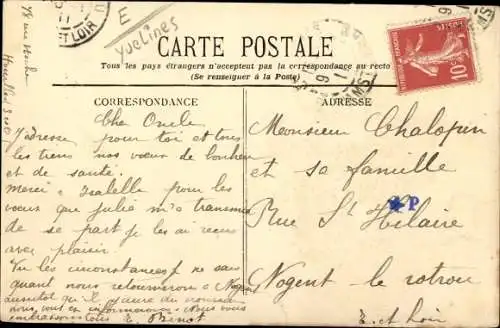 E
Yvelines
ET LOIR
CARTE POSTALE
Tous les pays étrangers n'acceptent pas la correspondance au recto
(Se renseigner à la Poste)
CORRESPONDANCE
ADRESSE
Cher Oncle
J'adresse pour toi et tous
les tiens nos vœux de bonheur
et de santé.
Merci à Isabelle pour les
vœux que Julia m'a transmis
de se part je les ai reçus
avec plaisir.
Vu les circonstances je ne sais
quant nous retournerons à Nogent
aussitot qu'il y aura du nouveau
nous vous en informerons. Nous vous
embrassons tous E. Binot
Monsieur Chalopin
et sa famille
Rue St Hilaire
Nogent le rotrou
E. et Loir
P
10